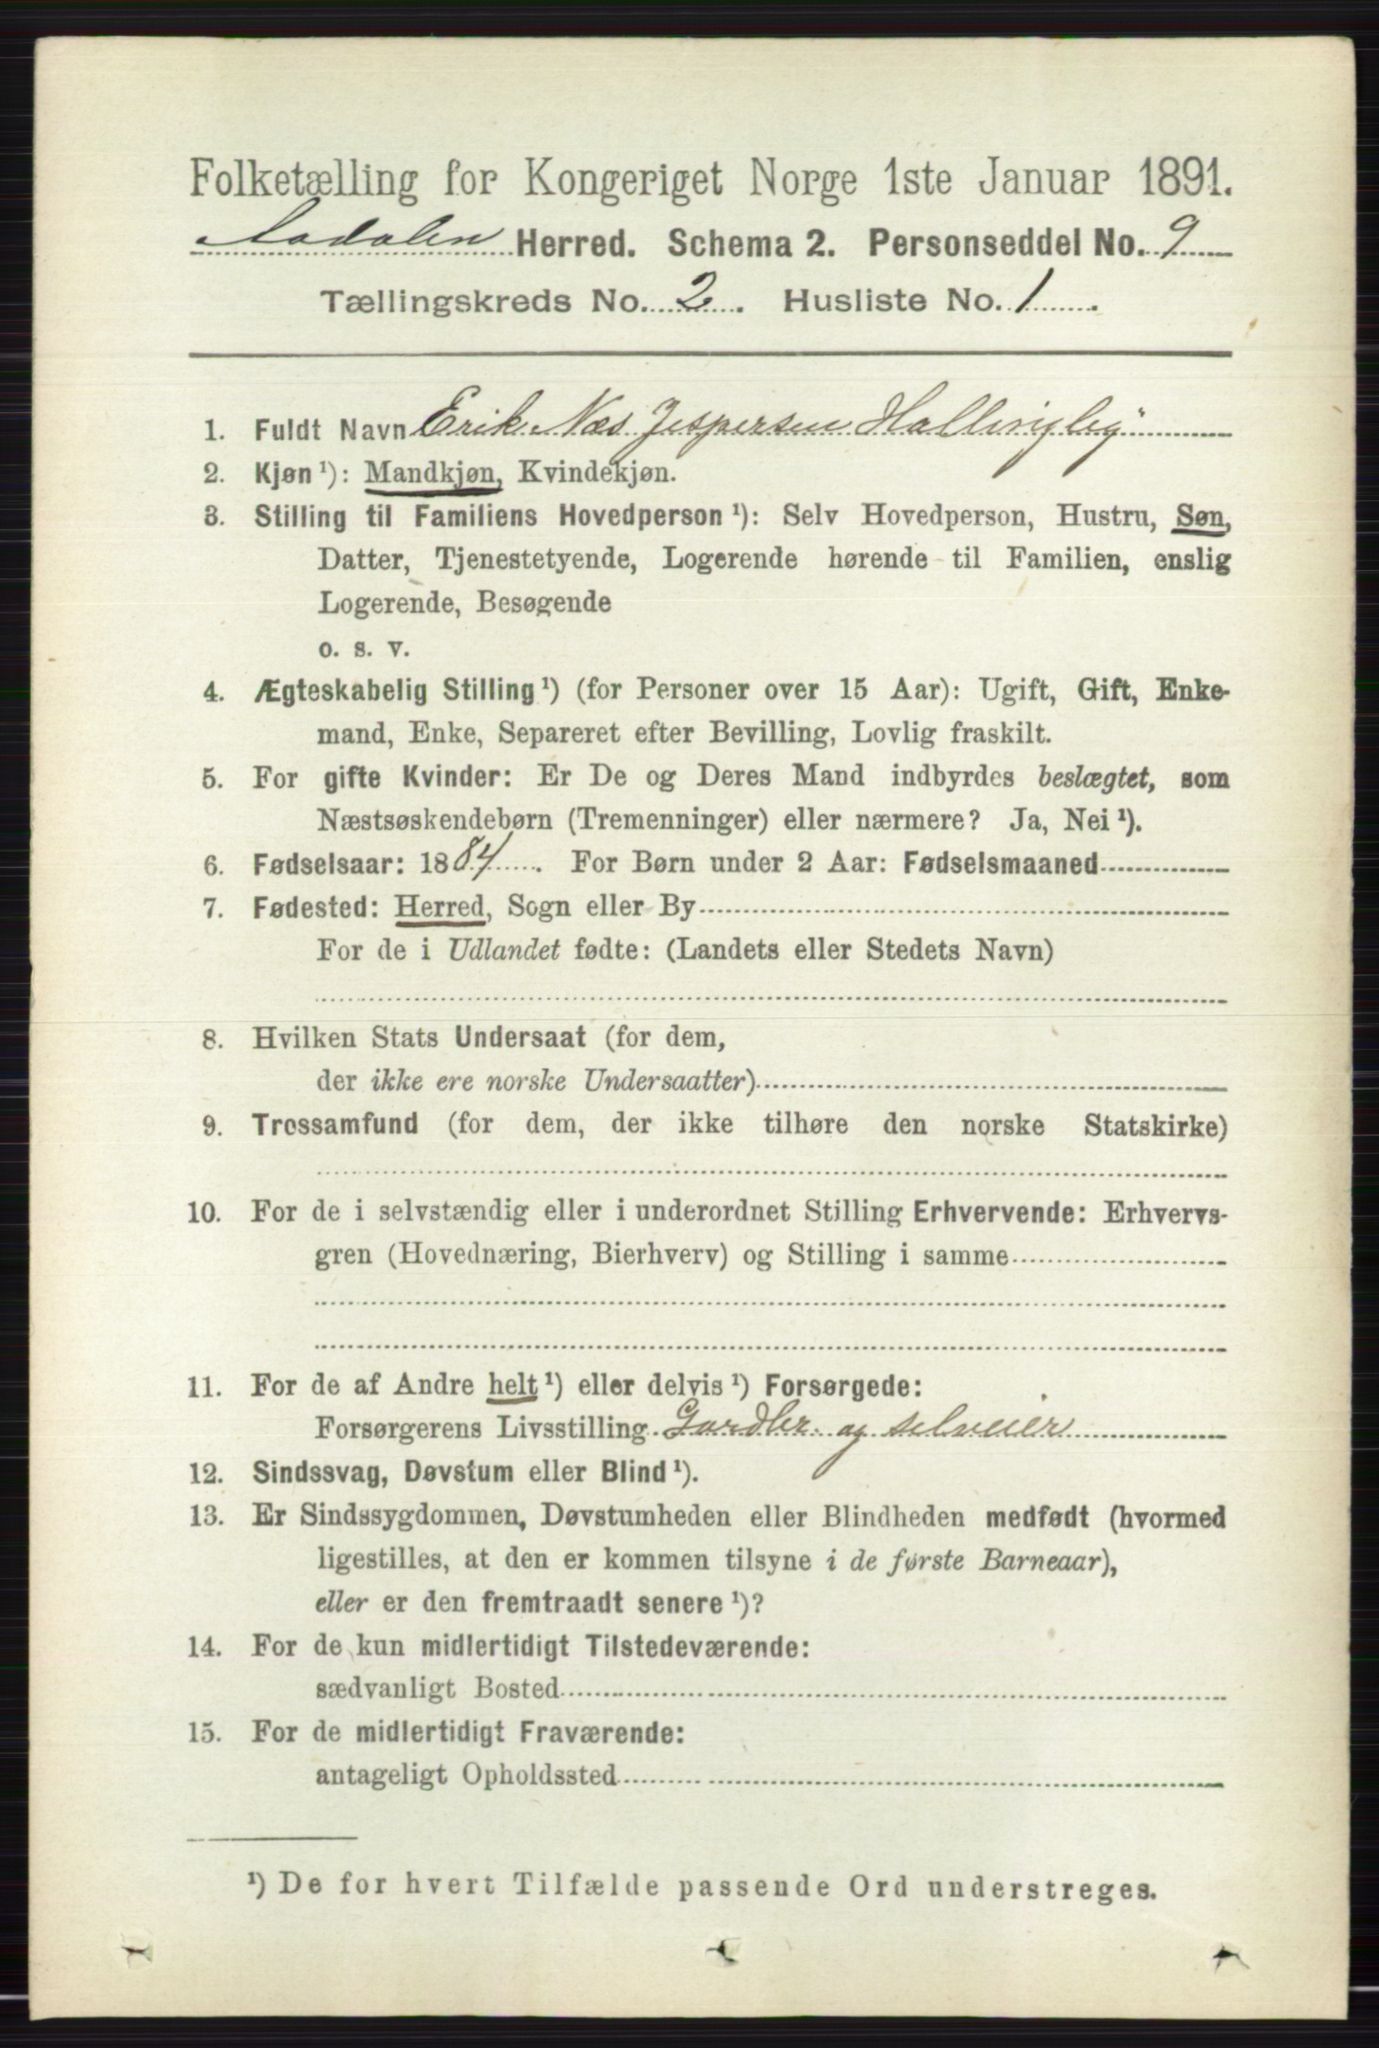 Folketælling for Kongeriget Norge 1ste Januar 1891.
Aadalen Herred. Schema 2. Personseddel No. 9
Tællingskreds No. 2. Husliste No. 1.
1. Fuldt Navn Erik Næs Jespersen Hallingby
2. Kjøn¹): Mandkjøn, Kvindekjøn.
3. Stilling til Familiens Hovedperson¹): Selv Hovedperson, Hustru, Søn,
Datter, Tjenestetyende, Logerende hørende til Familien, enslig
Logerende, Besøgende
o. s. v.
4. Ægteskabelig Stilling¹) (for Personer over 15 Aar): Ugift, Gift, Enke-
mand, Enke, Separeret efter Bevilling, Lovlig fraskilt.
5. For gifte Kvinder: Er De og Deres Mand indbyrdes beslægtet, som
Næstsøskendebørn (Tremenninger) eller nærmere? Ja, Nei¹).
6. Fødselsaar: 1884. For Børn under 2 Aar: Fødselsmaaned
7. Fødested: Herred, Sogn eller By
For de i Udlandet fødte: (Landets eller Stedets Navn)
8. Hvilken Stats Undersaat (for dem,
der ikke ere norske Undersaatter)
9. Trossamfund (for dem, der ikke tilhøre den norske Statskirke)
10. For de i selvstændig eller i underordnet Stilling Erhvervende: Erhvervs-
gren (Hovednæring, Bierhverv) og Stilling i samme
11. For de af Andre helt¹) eller delvis¹) Forsørgede:
Forsørgerens Livsstilling Gardbr. og selveier
12. Sindssvag, Døvstum eller Blind¹).
13. Er Sindssygdommen, Døvstumheden eller Blindheden medfødt (hvormed
ligestilles, at den er kommen tilsyne i de første Barneaar),
eller er den fremtraadt senere¹)?
14. For de kun midlertidigt Tilstedeværende:
sædvanligt Bosted
15. For de midlertidigt Fraværende:
antageligt Opholdssted
¹) De for hvert Tilfælde passende Ord understreges.